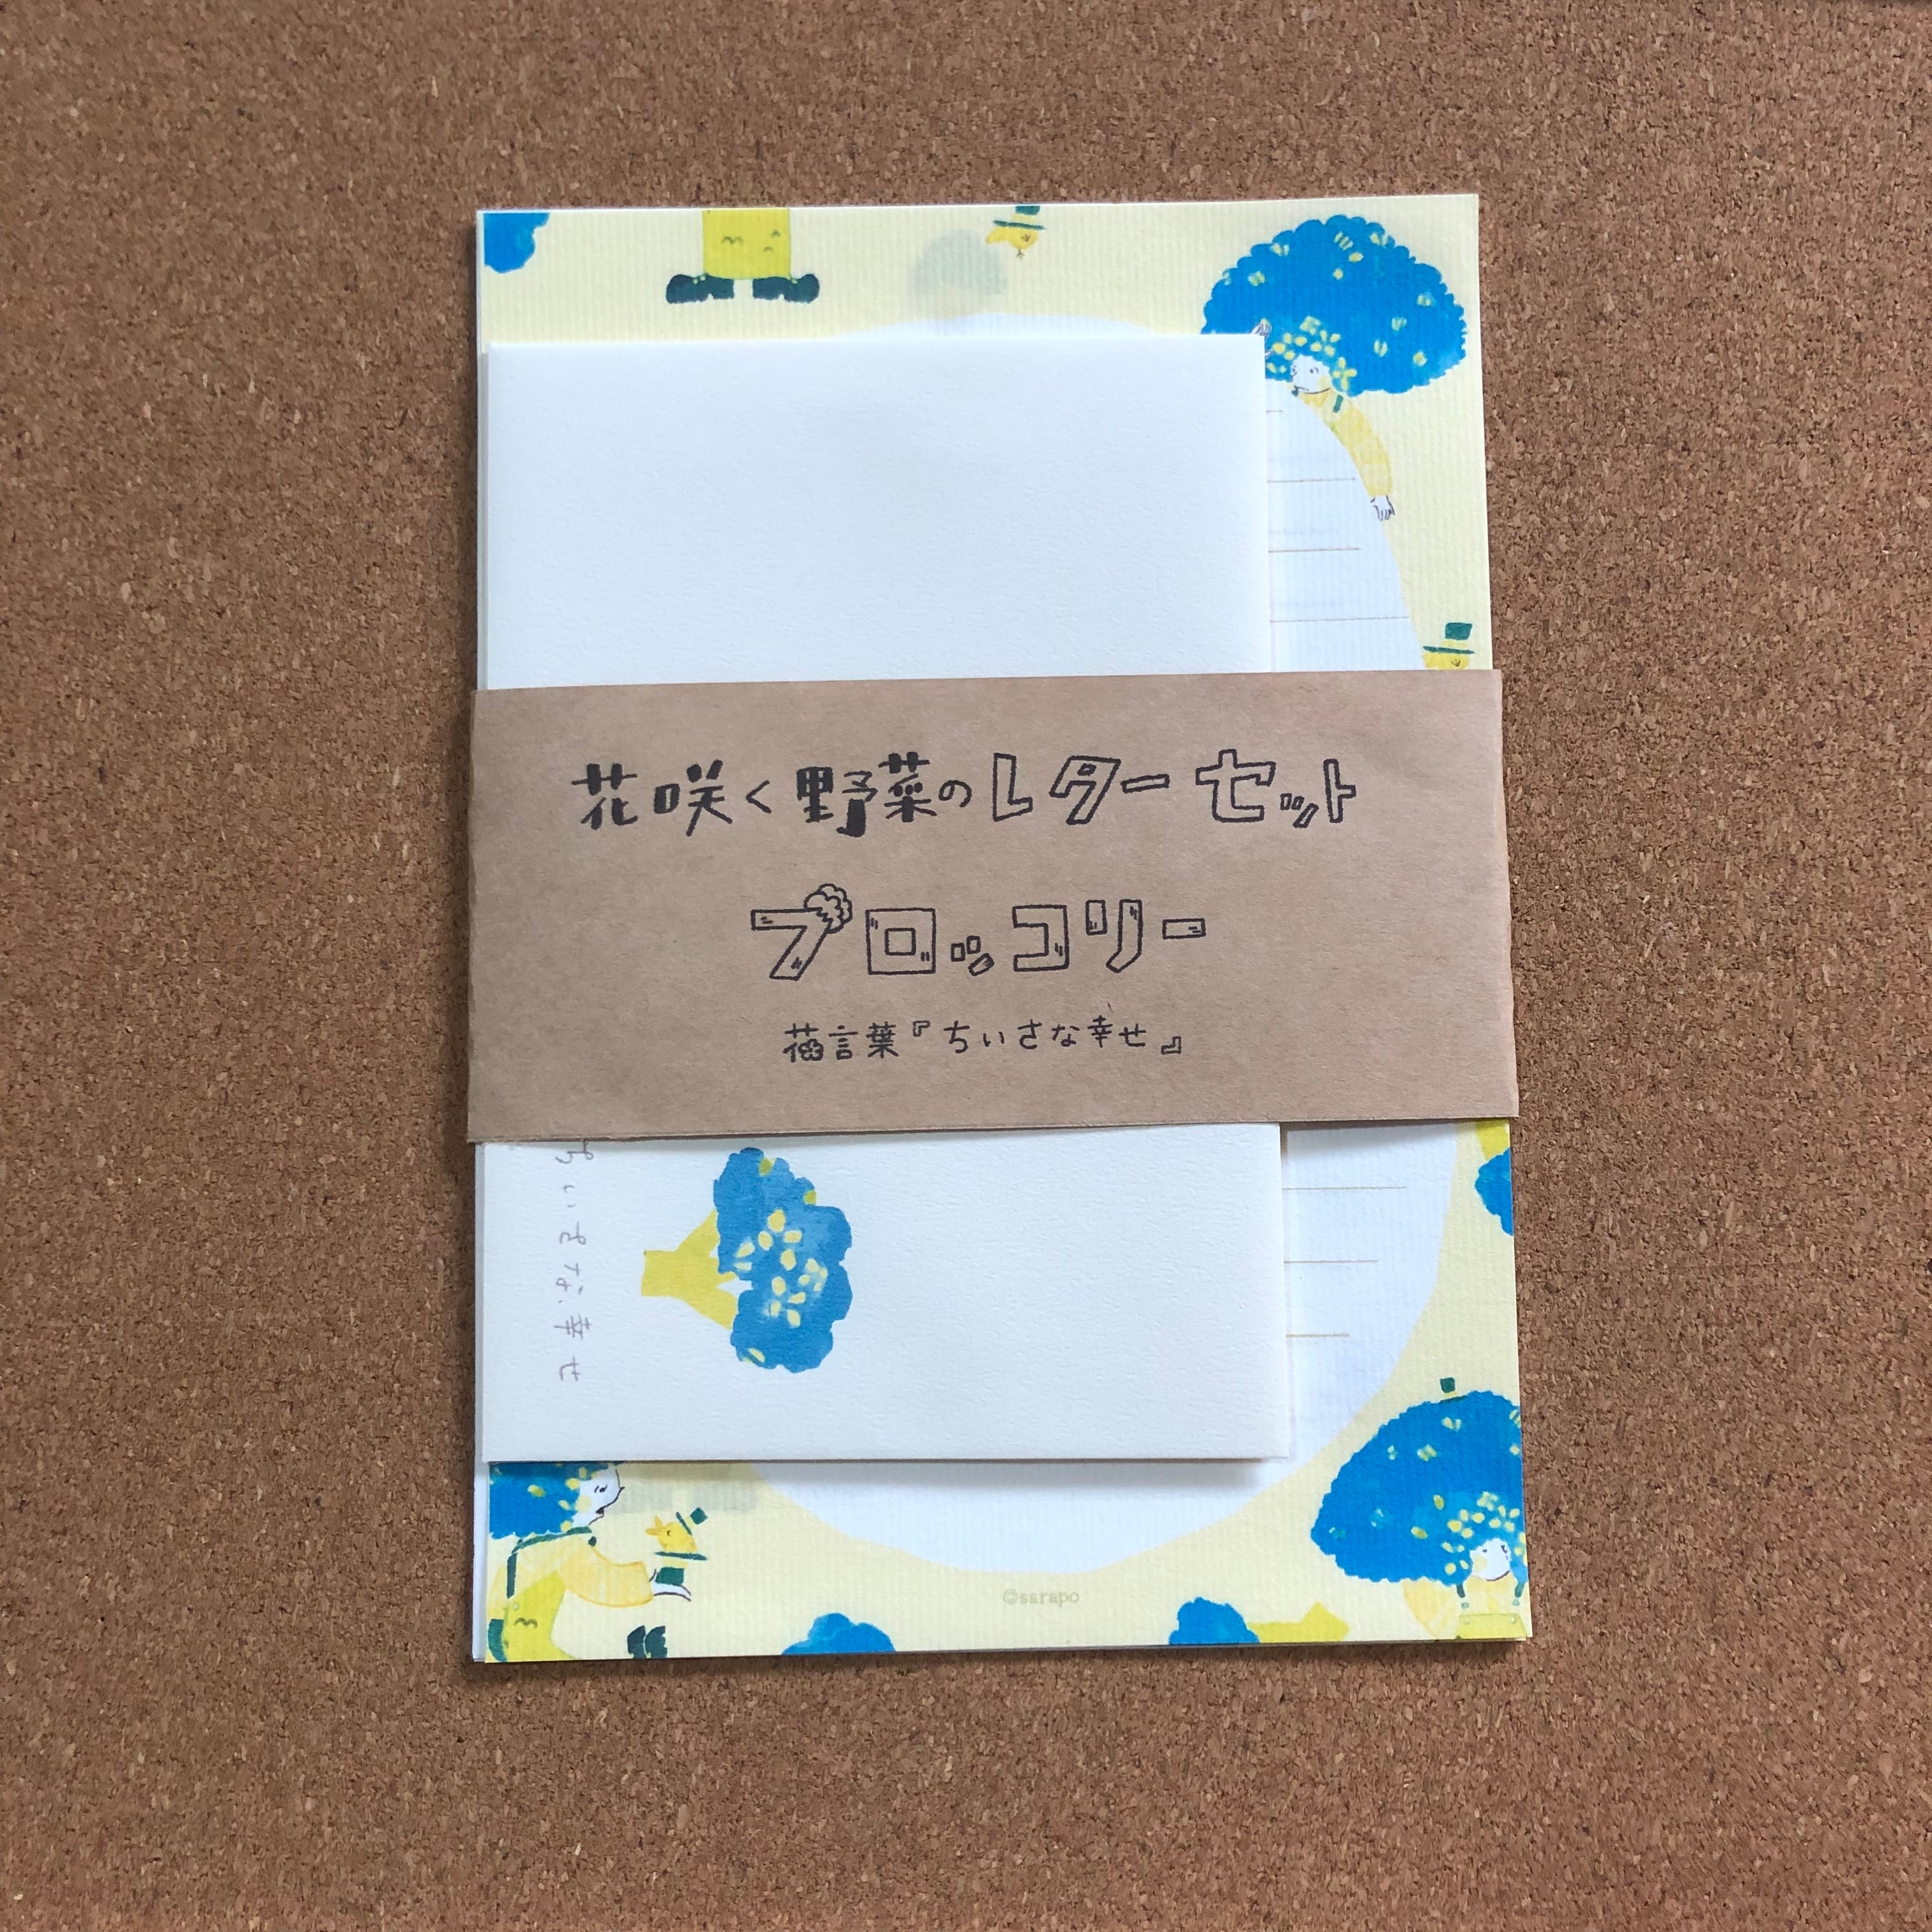 花咲く野菜のレターセット
ブロッコリー
花言葉『ちいさな幸せ』
ちいさな幸せ
©sarapo